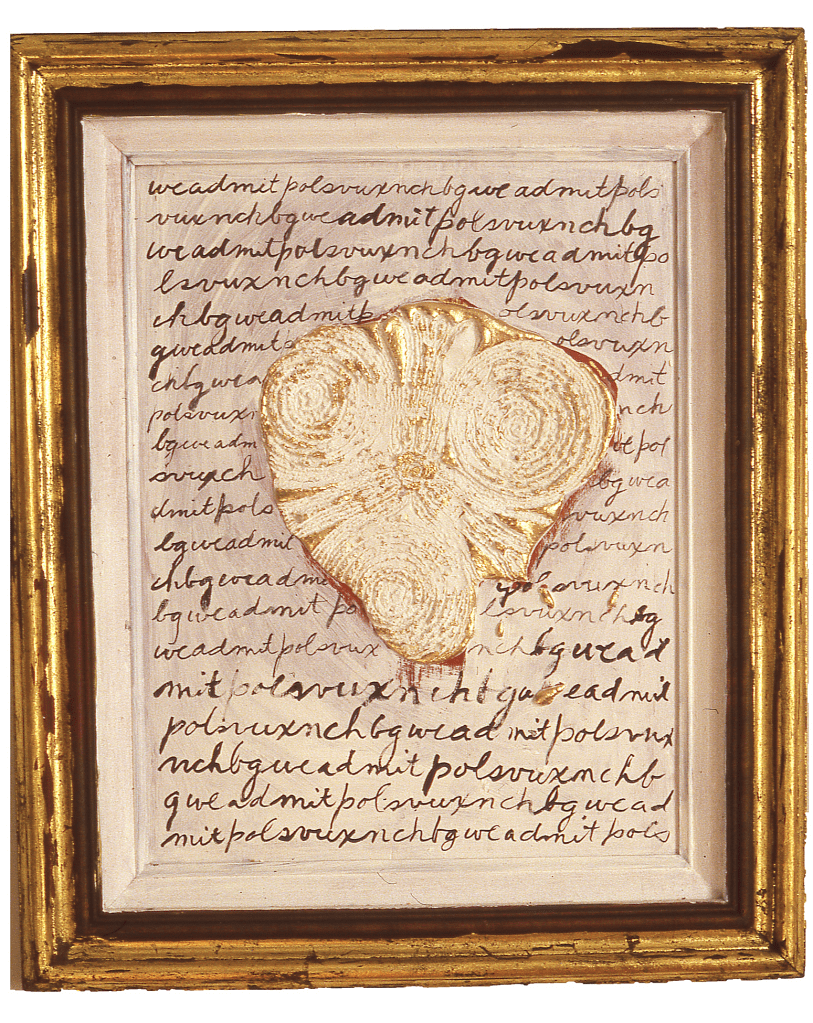 weadmitpolsvuxnchbgweadmitpols
vuxnchbgweadmitpolsvuxnchbg
weadmitpolsvuxnchbgweadmitpo
lsvuxnchbgweadmitpolsvuxn
chbgweadmitp olsvuxnchb
gweadmitp olsvuxn
chbgwea dmit
polsvuxn nch
bgweadm itpol
svuxch bgwea
dmitpols vuxnch
bgweadmit polsvuxn
chbgweadmi polsvuxnch
bgweadmitpo lsvuxnchbg
weadmitpolsvux nchbgwead
mitpolsvuxnchbgweadmit
polsvuxnchbgweadmitpolsvux
nchbgweadmitpolsvuxnchb
gweadmitpolsvuxnchbgwead
mitpolsvuxnchbgweadmitpols